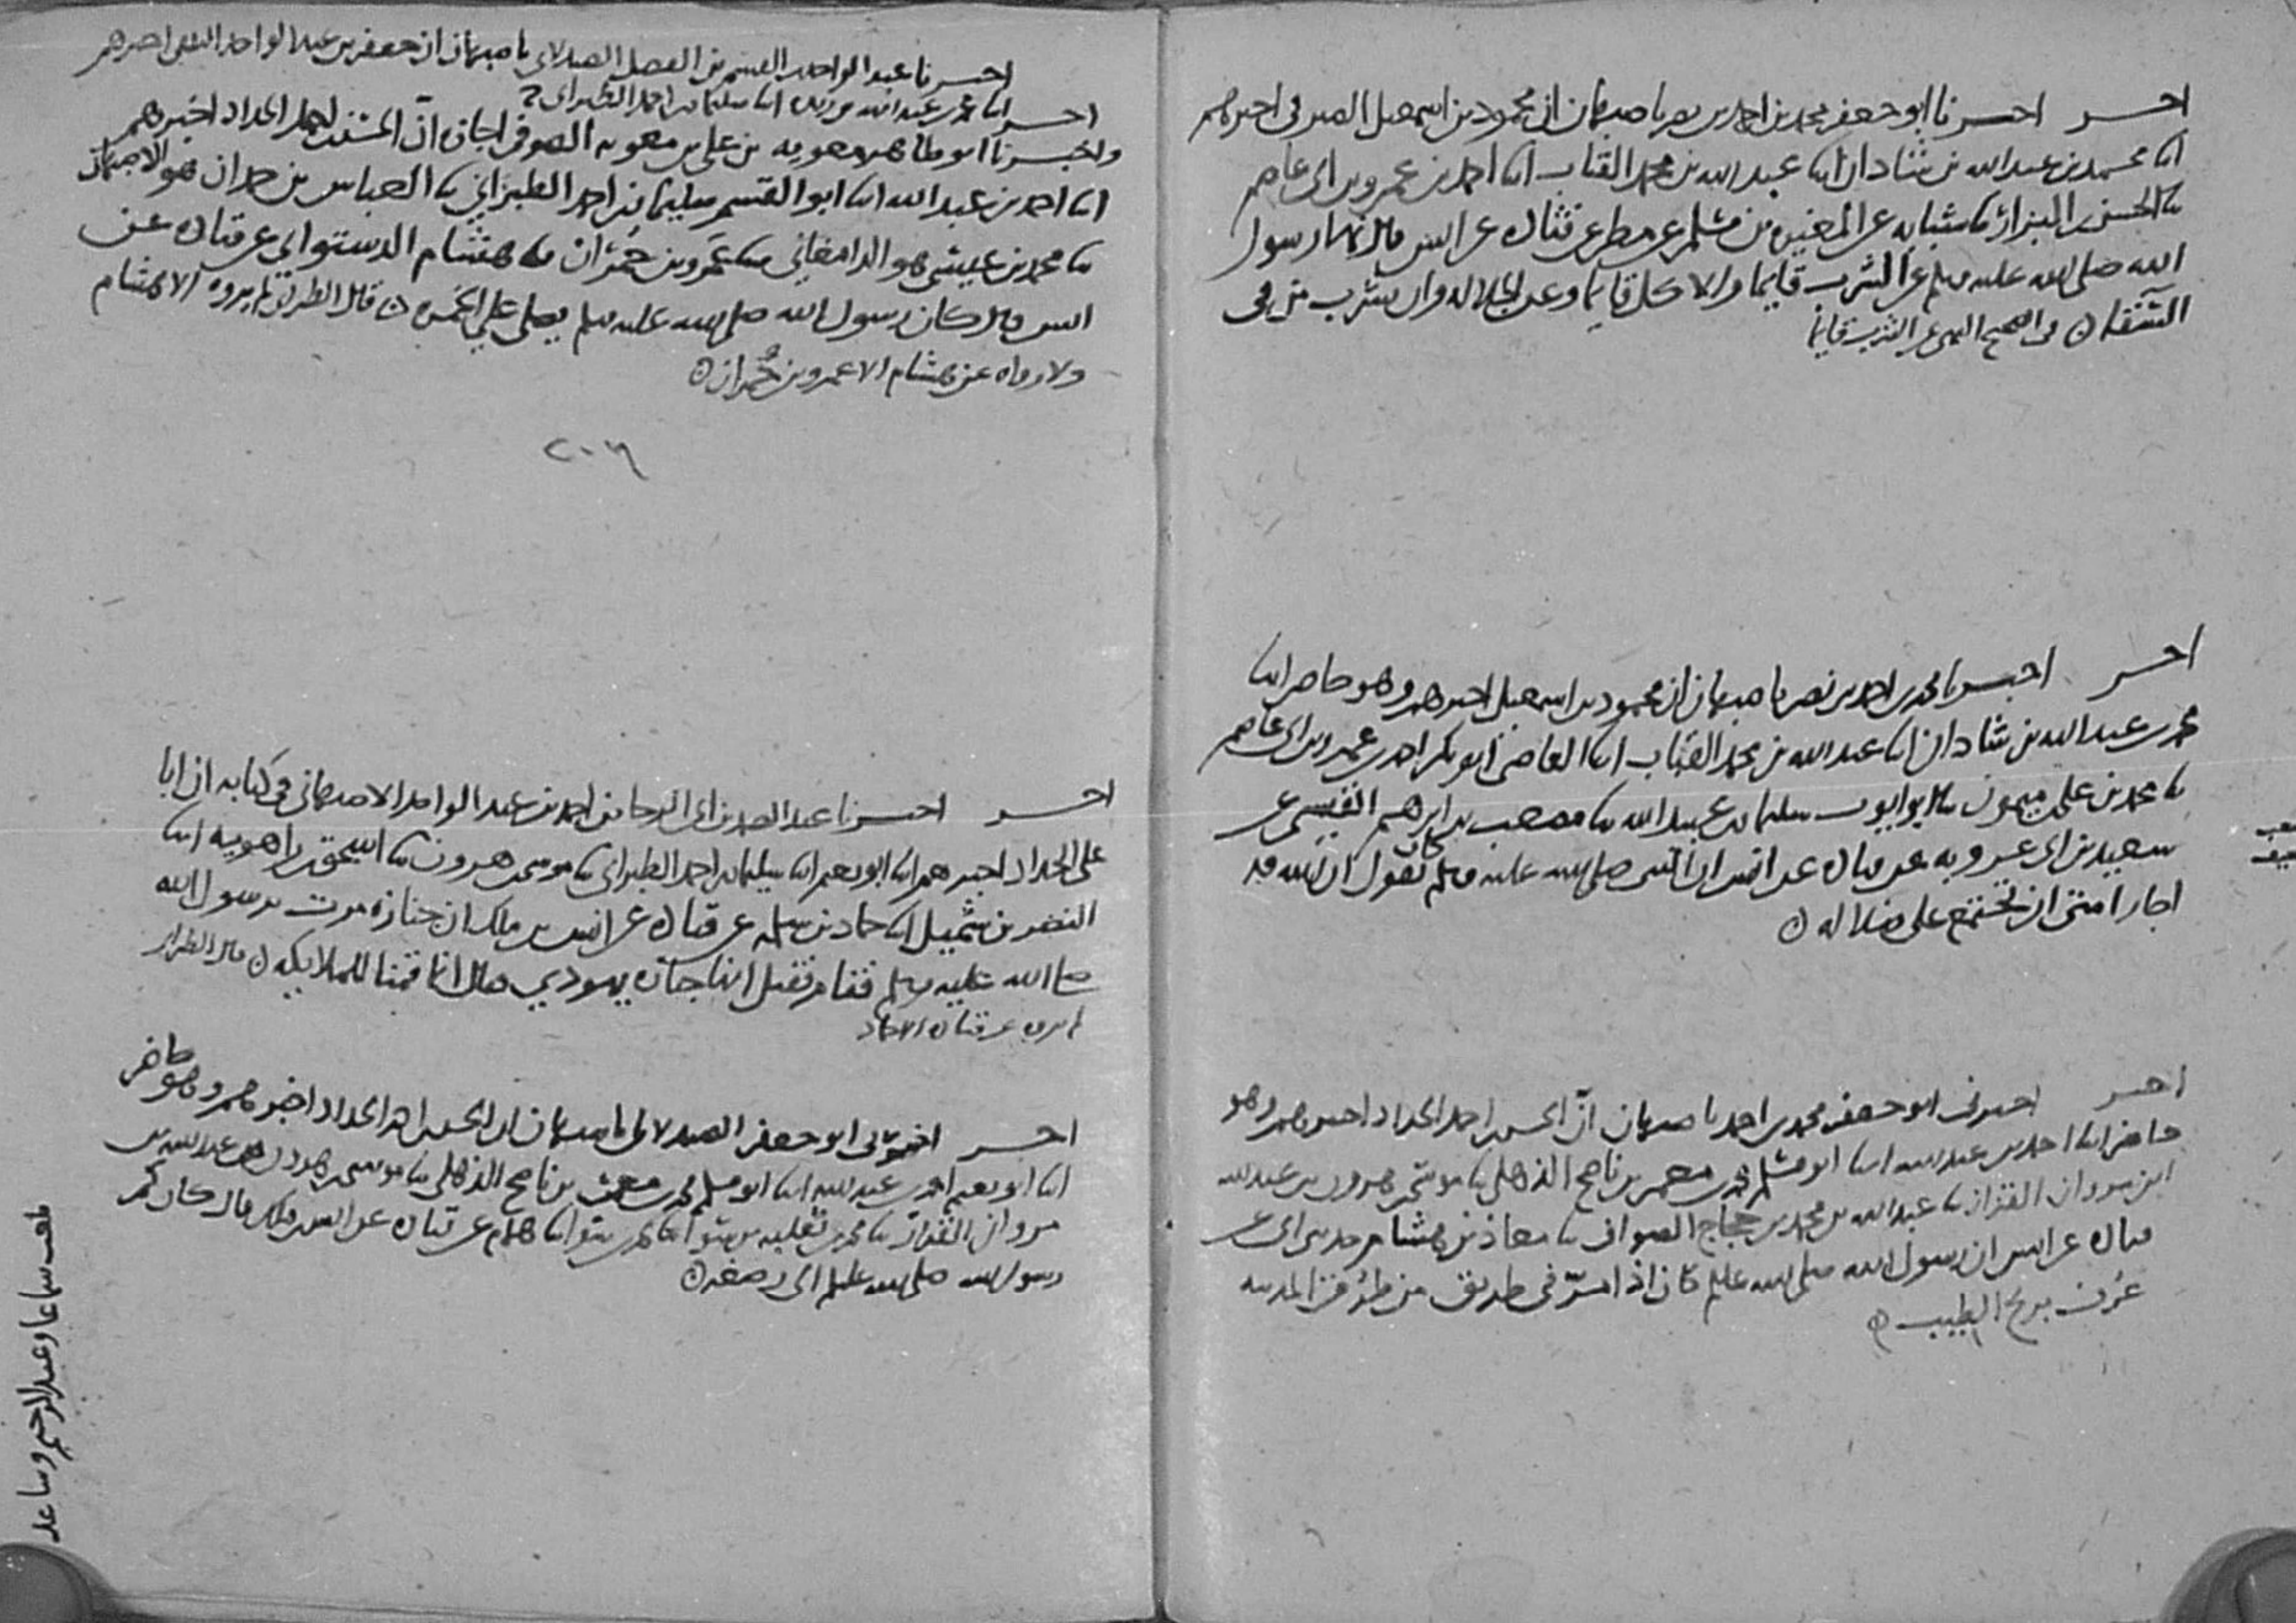 اخر اخبرنا ابو جعفر محمد بن احمد بن نصر باصبهان ان محمود بن اسمعيل الصيرفي اخبرهم
ابنا محمد بن عبد الله بن شاذان ابنا عبد الله بن محمد القباب ابنا احمد بن عمرو بن ابي عاصم
ثنا الحسن البزار ثنا شبابه عن المغيره بن مسلم عن مطر عن قتاده عن انس قال نهى رسول
الله صلى الله عليه وسلم عن الشرب قايما والاكل قايما وعن الجلاله وان يشرب من في
السقاء في الصحيح النهي عن الشرب قايما
اخر اخبرنا محمد بن احمد بن نصر باصبهان ان محمود بن اسمعيل اخبرهم وهو حاضر ابنا
محمد بن عبد الله بن شاذان ابنا عبد الله بن محمد القباب ابنا القاضي ابو بكر احمد بن عمرو بن ابي عاصم
ثنا محمد بن علي بن ميمون ثنا ابو ايوب سليمان بن عبيد الله ثنا مصعب بن ابرهيم القيسي عن
سعيد بن ابي عروبه عن قتاده عن انس ان النبي صلى الله عليه وسلم كان يقول ان الله قد
اجار امتي ان تجتمع على ضلاله
اخر اخبرني ابو جعفر محمد بن احمد باصبهان ان الحسن بن احمد الحداد اخبرهم وهو
حاضر ابنا احمد بن عبد الله ابنا ابو مسلم محمد بن معمر بن ناصح الذهلي ثنا موسى بن هرون بن عبد الله
ابن مروان القزاز ثنا عبد الله بن محمد بن حجاج الصواف ثنا معاذ بن هشام حدثني ابي عن
قتاده عن انس ان رسول الله صلى الله عليه وسلم كان اذا مر في طريق من طرق المدينه
عرف بريح الطيب
اخبرنا عبد الواحد بن القسم بن الفضل الصيدلاني باصبهان ان جعفر بن عبد الواحد الثقفي اخبرهم
ابنا محمد بن عبد الله بن ريذه ابنا سليمان بن احمد الطبراني ح
اخر
واخبرنا ابو طاهر معويه بن علي بن معويه الصوفي اجازه ان الحسن بن احمد الحداد اخبرهم
ابنا احمد بن عبد الله ابنا ابو القسم سليمان بن احمد الطبراني ثنا العباس بن حمدان هو الاصبهاني
ثنا محمد بن عيسى هو الدامغاني ثنا عمرو بن حمران ثنا هشام الدستوائي عن قتاده عن
انس قال كان رسول الله صلى الله عليه وسلم يصلي على الخمره قال الطبراني لم يروه الا هشام
ولا رواه عن هشام الا عمرو بن حمران
اخر اخبرنا عبد الصمد بن ابي الرجا بن احمد بن عبد الواحد الاصبهاني في كتابه ان ابا
علي الحداد اخبرهم ابنا ابو نعيم ابنا سليمان بن احمد الطبراني ثنا موسى بن هرون ثنا اسحق بن راهويه ابنا
النضر بن شميل ابنا حماد بن سلمه عن قتاده عن انس بن ملك ان جنازه مرت برسول الله
صلى الله عليه وسلم فقام فقيل انها جنازه يهودي فقال انا قمنا للملايكه قال الطبراني
لم يروه عن قتاده الا حماد
اخر اخبرني ابو جعفر الصيدلاني باصبهان ان الحسن بن احمد الحداد اخبرهم وهو حاضر
ابنا ابو نعيم احمد بن عبد الله ابنا ابو مسلم محمد بن معمر بن ناصح الذهلي ثنا موسى بن هرون بن عبد الله بن
مروان القزاز ثنا محمد بن ثعلبه بن سوا ابنا محمد بن سوا ابنا همام عن قتاده عن انس بن ملك قال كان كم
رسول الله صلى الله عليه وسلم الى رصغه